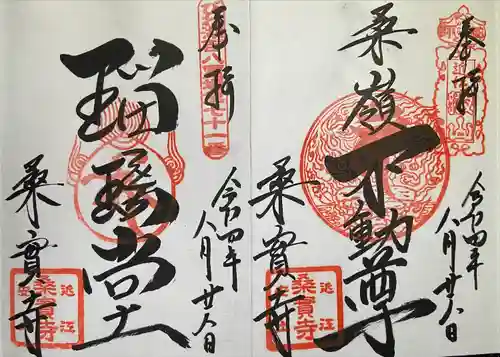 奉拝
桑嶺不動尊
令和四年
八月廿八日
桑實寺
近江
桑實寺
奉拝
瑠璃堂
令和四年
八月廿八日
桑實寺
近江
桑實寺